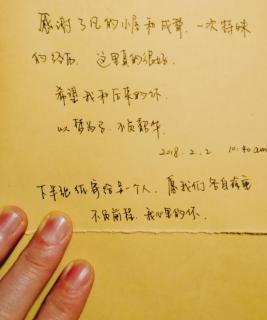 感谢了凡的小居和成梦，一次特殊
的经历，这里真的很好。
希望我和后来的你，
以梦为马，不负韶华。
2018.2.2 10:40am
下半张纸寄给某一个人，愿我们各自有
不负前程，我心里的你。